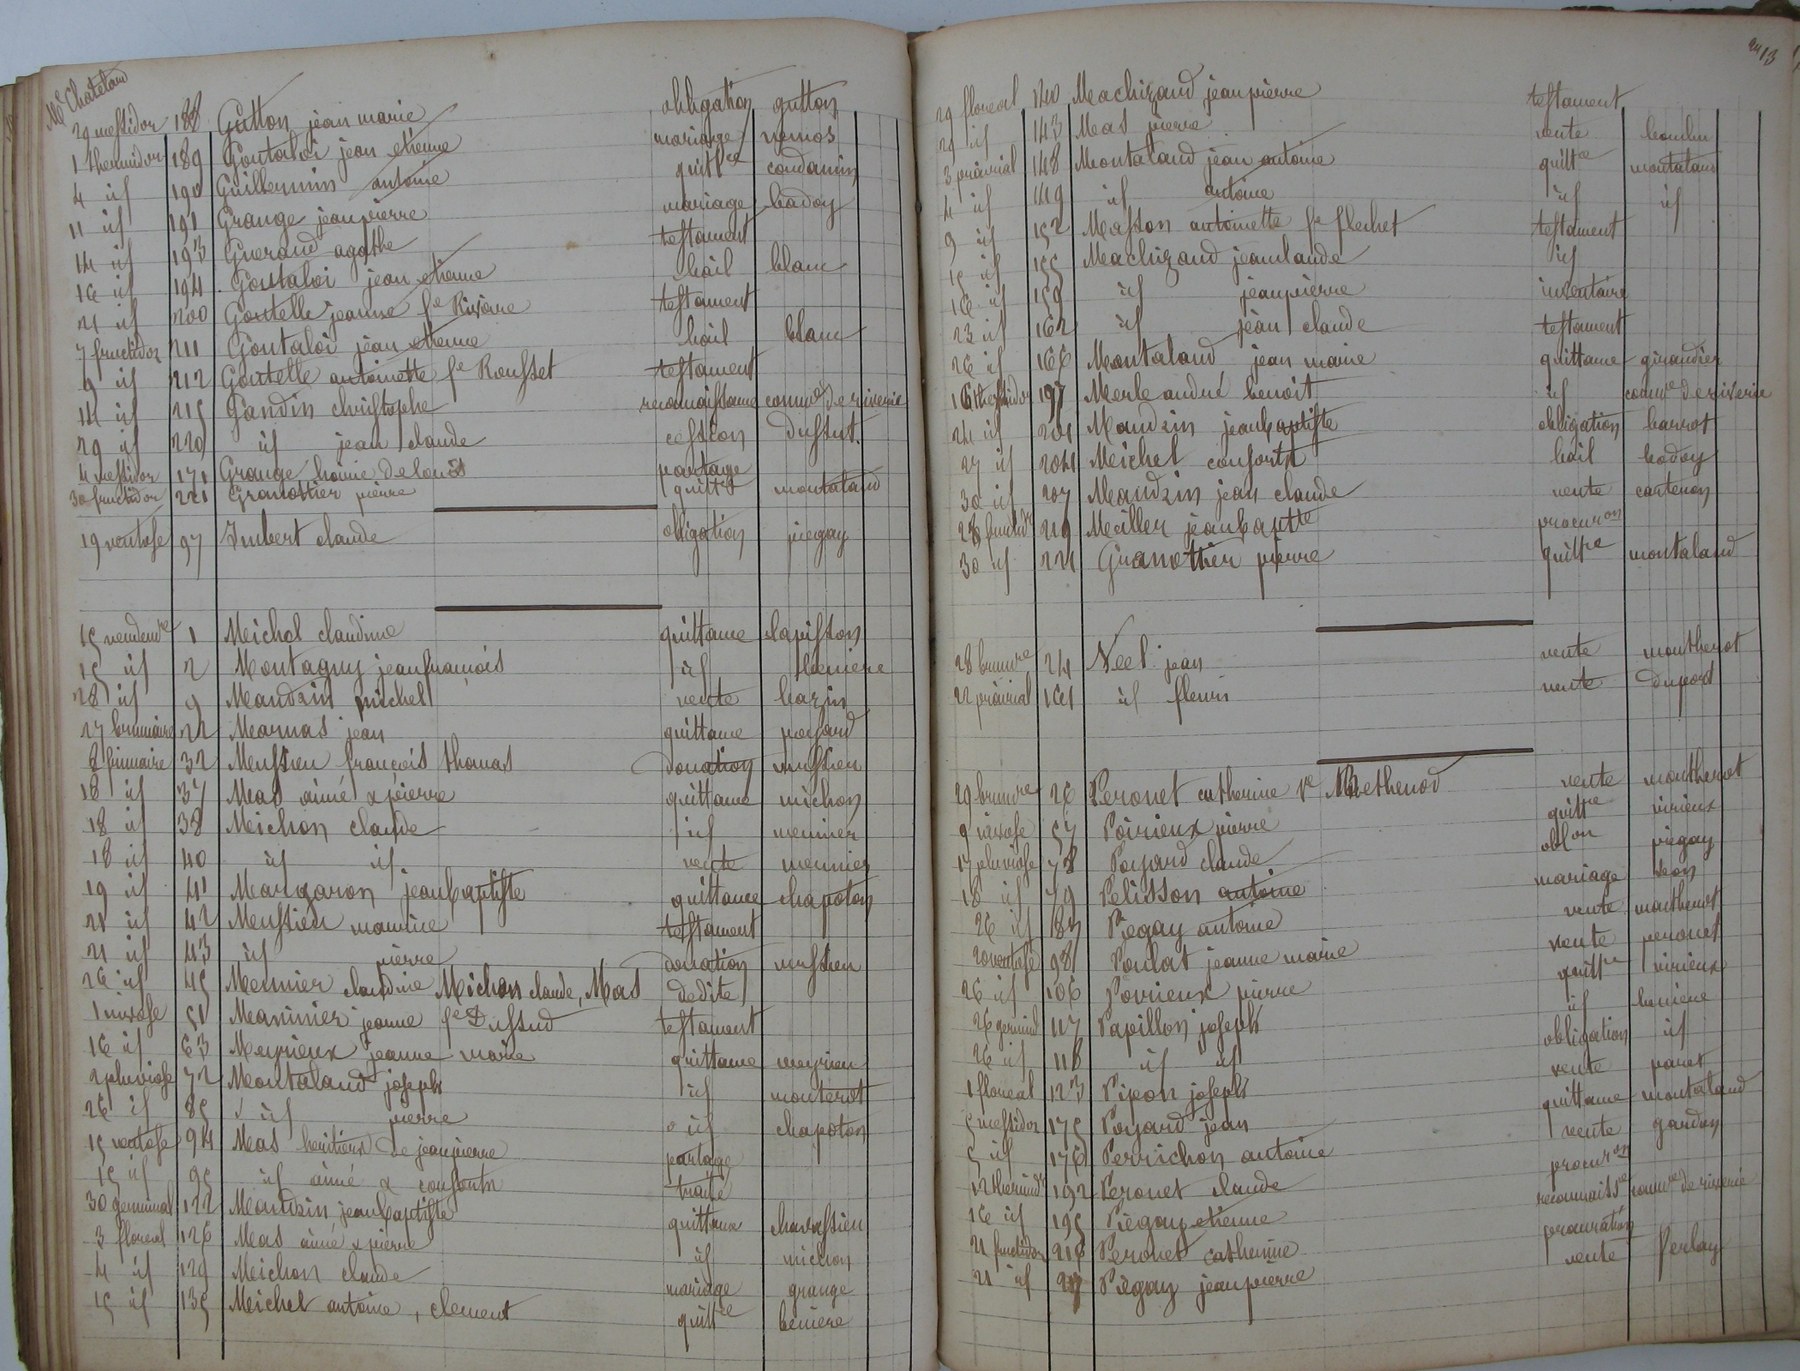 Me Chatelard
29 messidor 188 Gutton jean marie obligation gutton
1 thermidor 189 Goutaloi jean etienne mariage venios
4 id 190 Guillermin antoine quitce condamin
11 id 191 Grange jeanpierre mariage badoy
14 id 193 Gueraud agathe testament
16 id 194 Goutaloi jean etienne bail blanc
21 id 200 Goutelle jeanne fe Rivoire testament
7 fructidor 211 Goutaloi jean etienne bail blanc
9 id 212 Goutelle antoinette fe Rousset testament
14 id 215 Gandin christophe reconnaissance comme de riverie
29 id 220 id jean claude cession Dussut
4 messidor 171 Grange hoirie De louis partage
30 fructidor 221 Granottier pierre quitce montaland
19 ventose 97 Imbert claude obligation piegay
15 vendemre 1 Meichel claudine quittance lapisson
15 id 2 Montagny jeanfrancois id beniere
28 id 9 Maudzin michel vente bazin
27 brumaire 22 Marnas jean quittance poyard
8 frimaire 32 Mussieu francois thomas donation mussieu
18 id 37 Mas aimé & pierre quittance michon
18 id 38 Meichon claude id meunier
18 id 40 id id vente meunier
19 id 41 Margaron jeanbaptiste quittance chapoton
21 id 42 Mussieu maurice testament
21 id 43 id pierre donation mussieu
26 id 45 Meunier claudine Michon claude, Mas dedite
1 nivose 51 Marinier jeanne fe Dussud testament
16 id 63 Meyrieux jeanne marie quittance meyrieu
2 pluviose 72 Montaland joseph id monterot
26 id 85 id pierre id chapoton
15 ventose 94 Mas heritiers de jeanpierre partage
15 id 95 id aimé & consorts traité
30 germinal 122 Maudzin jeanbaptiste quittance chavassieu
3 floreal 126 Mas aimé & pierre id michon
4 id 129 Meichon claude mariage grange
15 id 135 Meichel antoine, clement quitce beniere
an 13
29 floreal 140 Machizaud jeanpierre testament
29 id 143 Mas pierre vente
3 prairial 148 Montaland jean antoine quitce montaland
4 id 149 id antoine id id
9 id 152 Masson antoinette fe flechet testament
15 id 155 Machizaud jeanclaude id
16 id 159 id jeanpierre inventaire
23 id 162 id jean claude testament
26 id 166 Montaland jean marie quittance giraudier
16 thermidor 197 Merle andré benoit id comme de riverie
24 id 201 Maudzin jeanbaptiste obligation barrot
27 id 204 Meichel consorts bail badoy
30 id 207 Maudzin jean claude vente carteron
28 fructidr 219 Meiller jeanbaptte procuron
30 id 221 Granottier pierre quittce montaland
28 brumre 24 Néel jean vente montherot
22 prairial 161 id fleuri vente duport
29 brumre 26 Peronet catherine ve Methenod vente montherot
9 nivose 57 Poirieux pierre quitce virieux
17 pluviose 78 Poyard claude oblon piegay
18 id 79 Pelisson antoine mariage
26 id 87 Piegay antoine vente montherot
20 ventose 98 Poulat jeanne marie vente peronet
26 id 106 Poirieux pierre quittce virieux
26 germinal 117 Papillon joseph id beniere
26 id 118 id id obligation id
1 floreal 123 Pipon joseph vente
5 messidor 175 Poyard jean quittance montaland
5 id 176 Perrichon antoine vente gandin
12 thermidr 192 Peronet claude procuron
16 id 195 Piegay etienne reconnaissce comme de riverie
21 fructidor 216 Peronet catherine procuration
21 id 217 Piegay jeanpierre vente Perlay